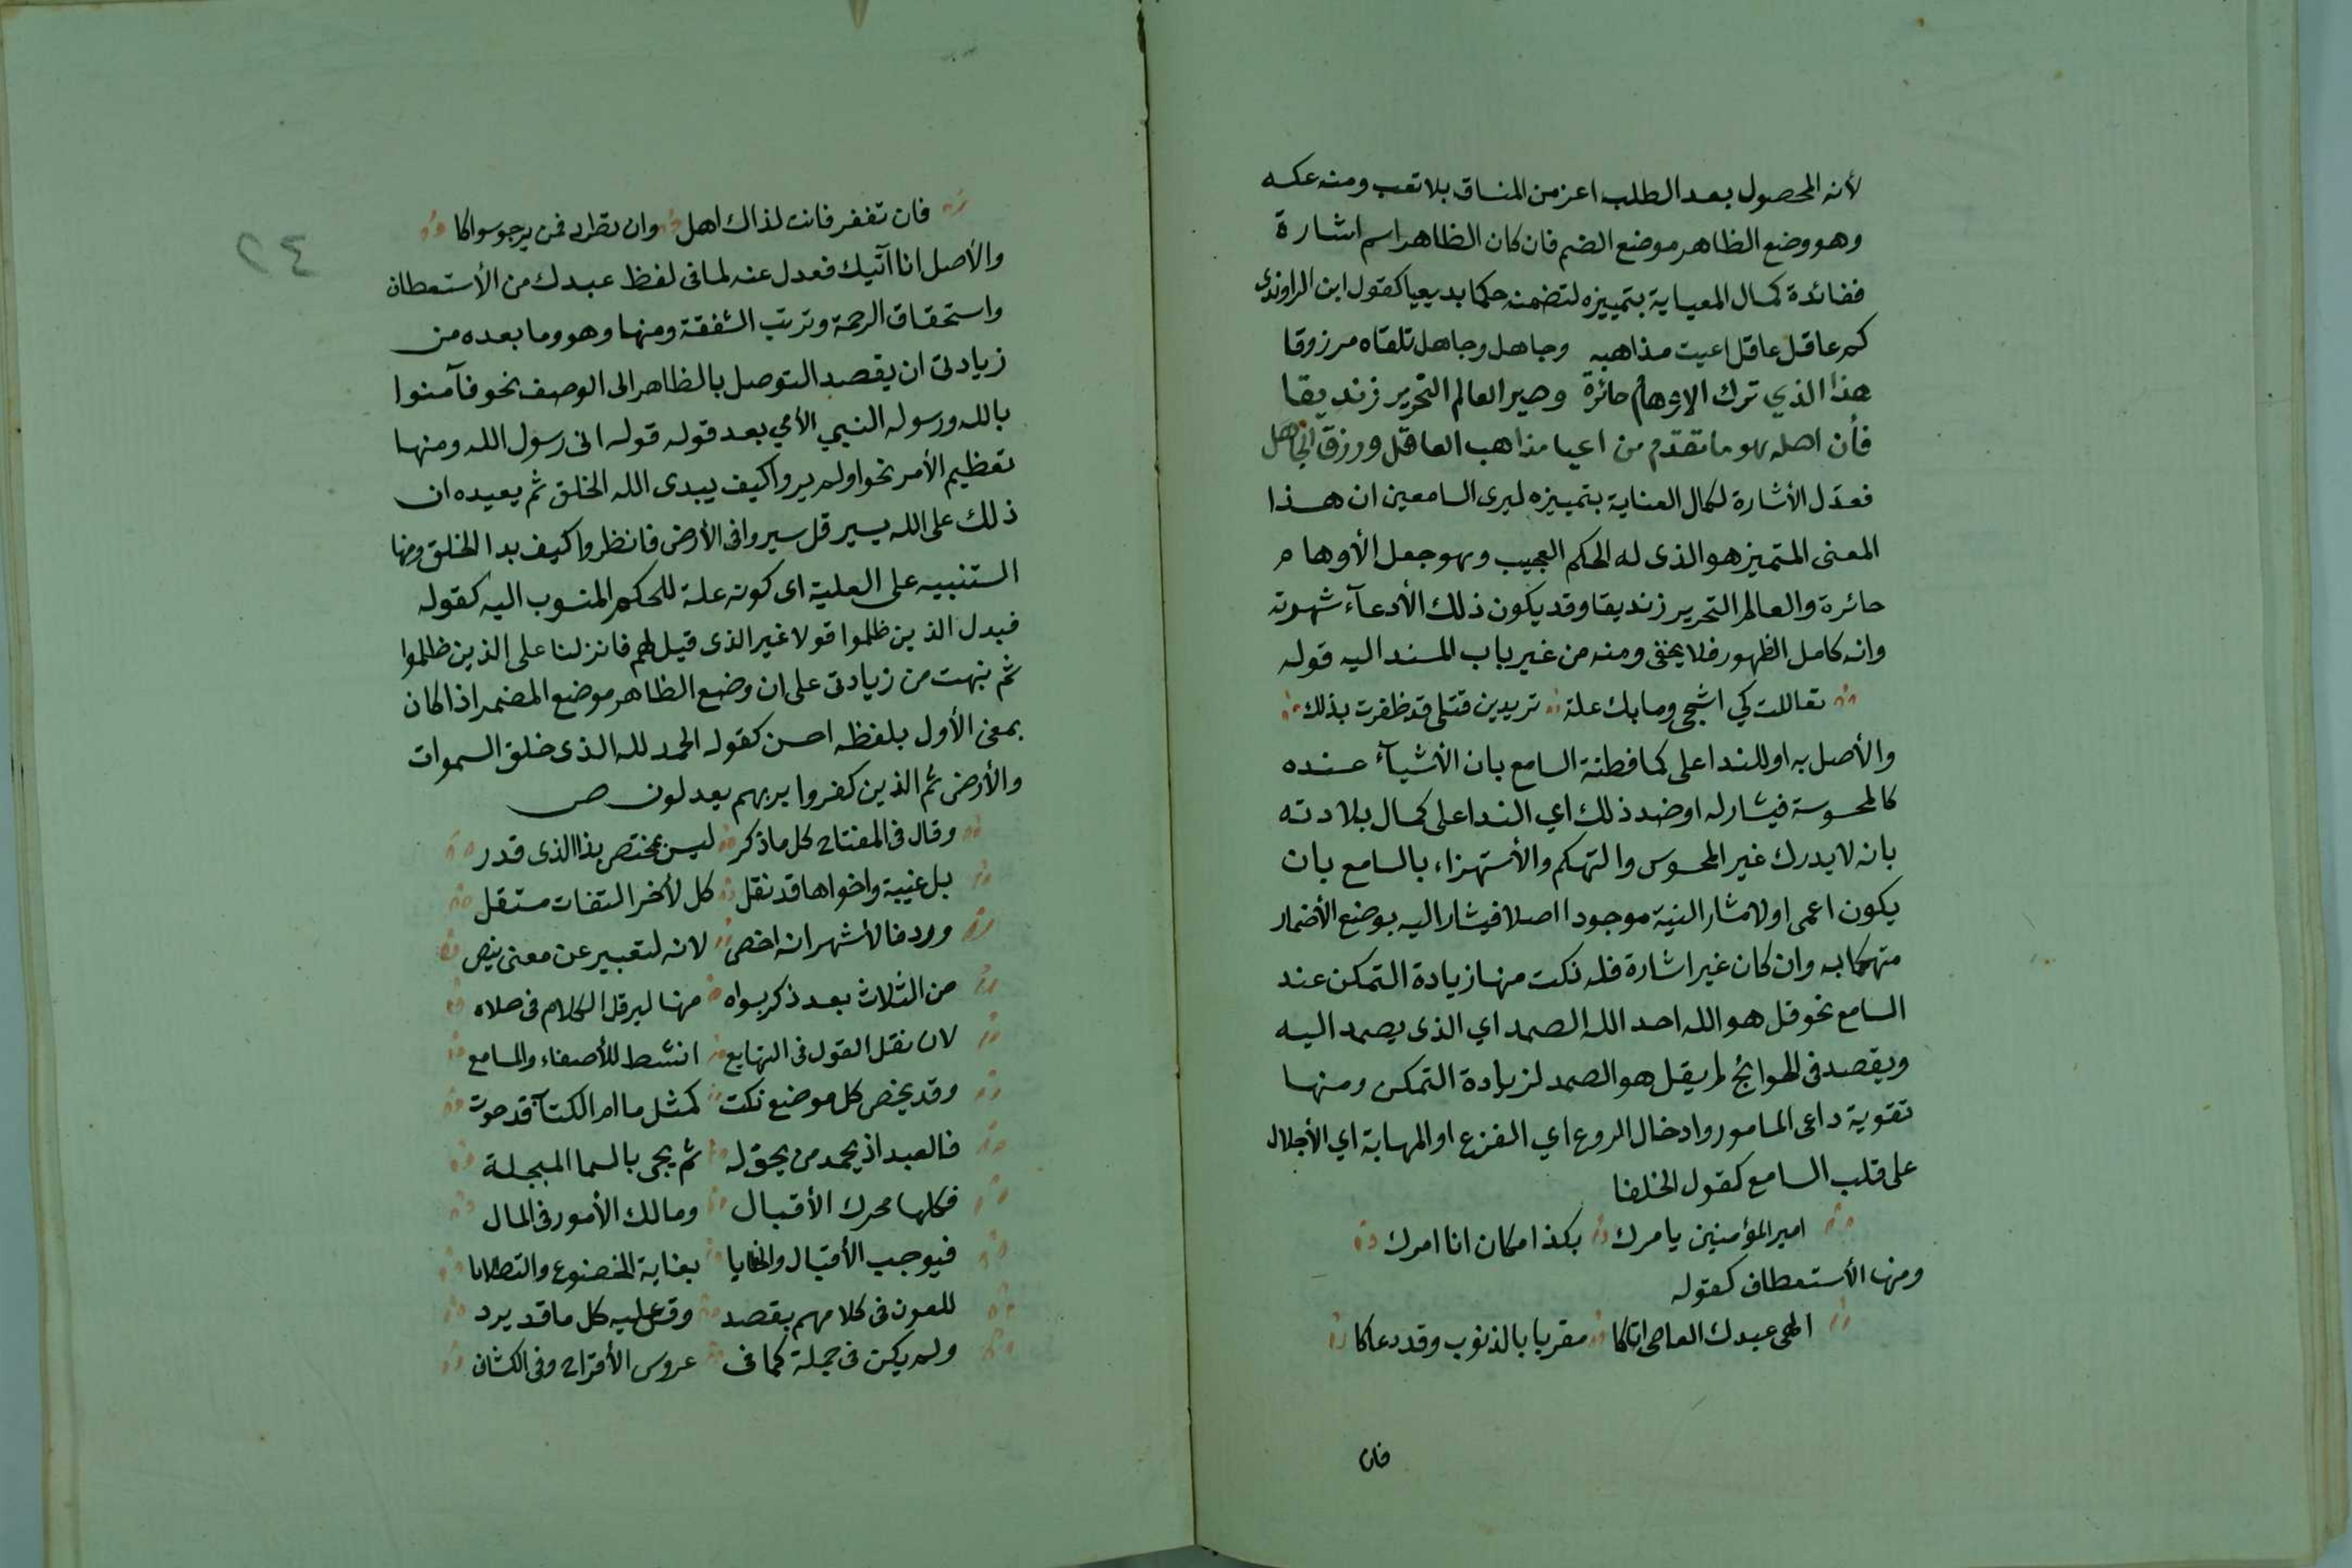 لأنه المحصول بعد الطلب اعز من المنساق بلا تعب ومنه عكسه
وهو وضع الظاهر موضع الضم فان كان الظاهر اسم اشارة
ففائدة كمال المعياية بتمييزه لتضمنه حكما بديعيا كقول ابن الراوندي
كم عاقل عاقل اعيت مذاهبه وجاهل وجاهل تلقاه مرزوقا
هذا الذي ترك الاوهام حائرة وصير العالم النحرير زنديقا
فأن اصله هو ما تقدم من اعيا مذاهب العاقل ورزق الجاهل
فعدل الأشارة لكمال العناية بتمييزه ليرى السامعين ان هذا
المعنى المتميز هو الذى له الحكم العجيب وهو جعل الأوهام
حائرة والعالم النحرير زنديقا وقد يكون ذلك الأدعآء شهرته
وانه كامل الظهور فلا يخفى ومنه من غير باب المسند اليه قوله
تعاللت كي اشجى وما بك علة تريدين قتلى قد ظفرت بذلك
والأصل به او للندا على كما فطنة السامع بان الأشيآء عنده
كالمحسوسة فيشار له او ضد ذلك اي الندا على كمال بلادته
بانه لا يدرك غير المحسوس والتهكم والأستهزاء بالسامع بان
يكون اعمى او لا مشار الىيه موجودا اصلا فيشار اليه بوضع الأضمار
متهكما به وان كان غير اشارة فله نكت منها زيادة التمكن عند
السامع نحو قل هو الله احد الله الصمد اي الذى يصمد اليه
ويقصد فى الحوائج لم يقل هو الصمد لزيادة التمكن ومنها
تقوية داعى المامور وادخال الروع اي الفزع او المهابة اي الأجلال
على قلب السامع كقول الخلفا
امير المؤمنين يامرك بكذا مكان انا امرك
ومنها الأستعطاف كقوله
الهى عبدك العاصى اتاكا مقربا بالذنوب وقد دعاكا
فان
٢٤
فان تغفر فانت لذاك اهل وان تطرد فمن يرجو سواكا
والأصل انا آتيك فعدل عنه لما فى لفظ عبدك من الأستعطاف
واستحقاق الرحمة وترتب الشفقة ومنها وهو وما بعده من
زيادتى ان يقصد التوصل بالظاهر الى الوصف نحو فآمنوا
بالله ورسوله النبي الأمي بعد قوله قوله انى رسول الله ومنها
تعظيم الأمر نحو اولم يروا كيف يبدى الله الخلق ثم يعيده ان
ذلك على الله يسير قل سيروا فى الأرض فانظروا كيف بدا الخلق ومنها
التنبيه على العلية اى كونه علة للحكم المنسوب اليه كقوله
فبدل الذين ظلموا قولا غير الذى قيل لهم فانزلنا على الذين ظلموا
ثم نبهت من زيادتى على ان وضع الظاهر موضع المضمر اذا كان
بمعنى الأول بلفظه احسن كقوله الحمد لله الذى خلق السموات
والأرض ثم الذين كفروا بربهم يعدلون ص
وقال فى المفتاح كل ما ذكر ليس بمختص بذا الذى قدر
بل غيبة واخواها قد نقل كل لأخر التفات مستقل
وردفا لأشهر انه اخص لانه لتعبير عن معنى ينص
من الثلاث بعد ذكر بسواه منها ليرقل الكلام فى حلاه
لان نقل القول فى المهايع انشط للأصغاء والمسامع
وقد يخص كل موضع نكت كمثل ما ام الكتآ قد حوت
فالعبد اذ يحمد من يحق له ثم يجى بالسما المبجلة
فكلها محرك الأقبال ومالك الأمور فى المال
فيوجب الأقبال والخطايا بغاية الخضوع والتطلابا
للعون فى كلا مهم يقصد وقس عليه كل ما قد يرد
ولم يكن فى جملة كما فى عروس الأفراح وفى الكشاف